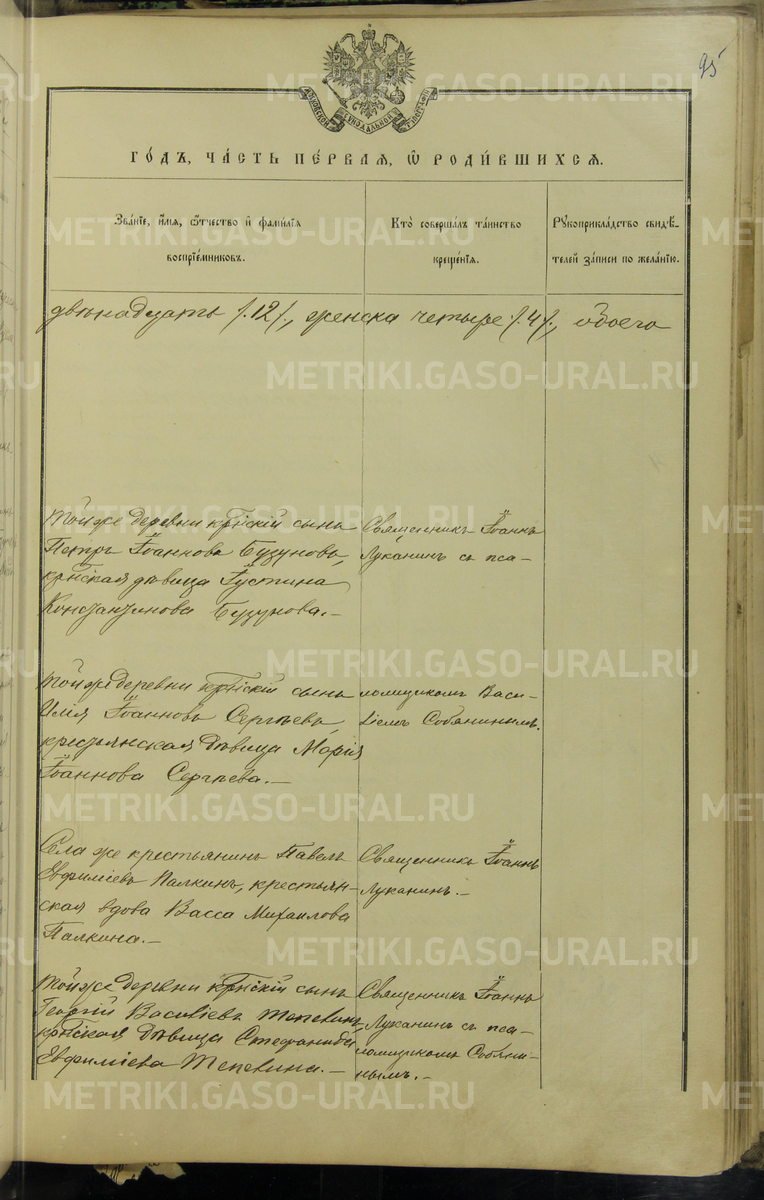 95
МОСКОВСКОЙ СѴНОДАЛЬНОЙ ТѴПОГРАФІИ
ГО́ДЪ, ЧА́СТЬ ПЕ́РВАЯ, Ѽ РОДИ́ВШИХСЯ.
Зва́нїе, и҆́мя, ѻ҆́тчество и҆ фами́лїя
воспрїе́мниковъ.
Кто̀ соверша́лъ та́инство
креще́нїя.
Рꙋкоприкла́дство свидѣ́-
телей за́писи по жела́нїю.
двѣнадцать /.12/., женска четыре /.4/., обоего
Той же деревни крнскій сынъ
Петръ Іоанновъ Бузуновъ,
крнская дѣвица Іустина
Константинова Бузунова.—
Священникъ Іоаннъ
Луканинъ съ пса-
Той же деревни крнскій сынъ
Илія Іоанновъ Сергѣевъ,
крестьянская дѣвица Марія
Іоаннова Сергѣева.—
ломщикомъ Васи-
ліемъ Собянинымъ.
Села же крестьянинъ Павелъ
Евфиміевъ Палкинъ, крестьян-
ская вдова Васса Михаилова
Палкина.—
Священникъ Іоаннъ
Луканинъ.—
Той же деревни крнскій сынъ
Георгій Василіевъ Шепелинъ,
крнская дѣвица Стефанида
Евфиміева Шепелина.—
Священникъ Іоаннъ
Луканинъ съ пса-
ломщикомъ Собяни-
нымъ.—
METRIKI.GASO-URAL.RU